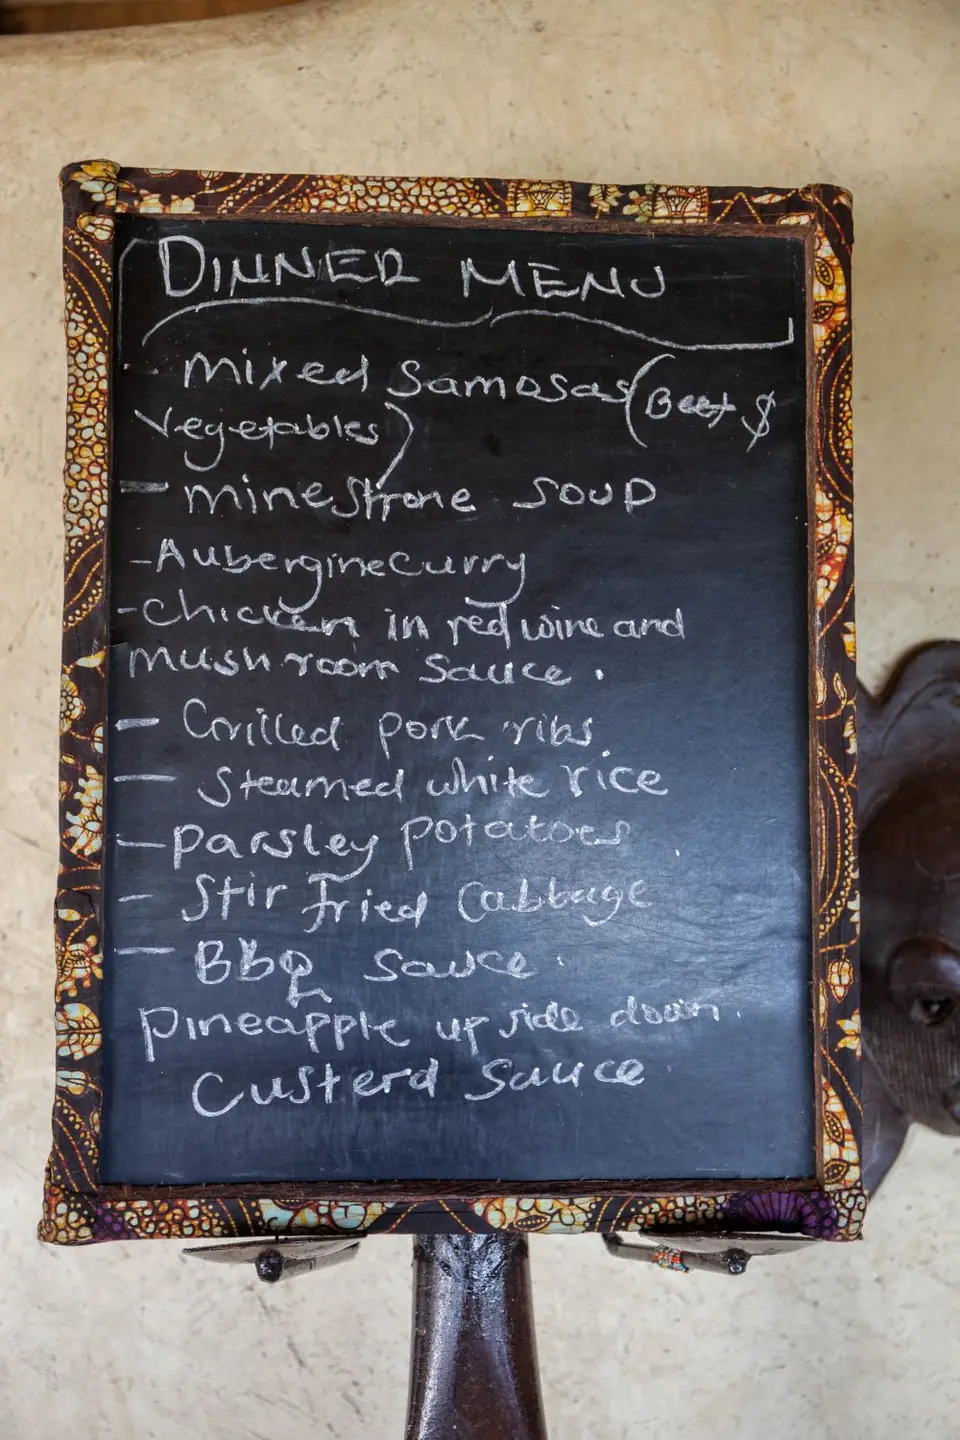 DINNER MENU
- Mixed Samosas (Beef $
Vegetables)
- minestrone soup
- Aubergine curry
- Chicken in red wine and
mushroom sauce.
- Grilled pork ribs.
- Steamed white rice
- Parsley potatoes
- Stir fried Cabbage
- BBQ sauce.
Pineapple up side down.
Custerd Sauce